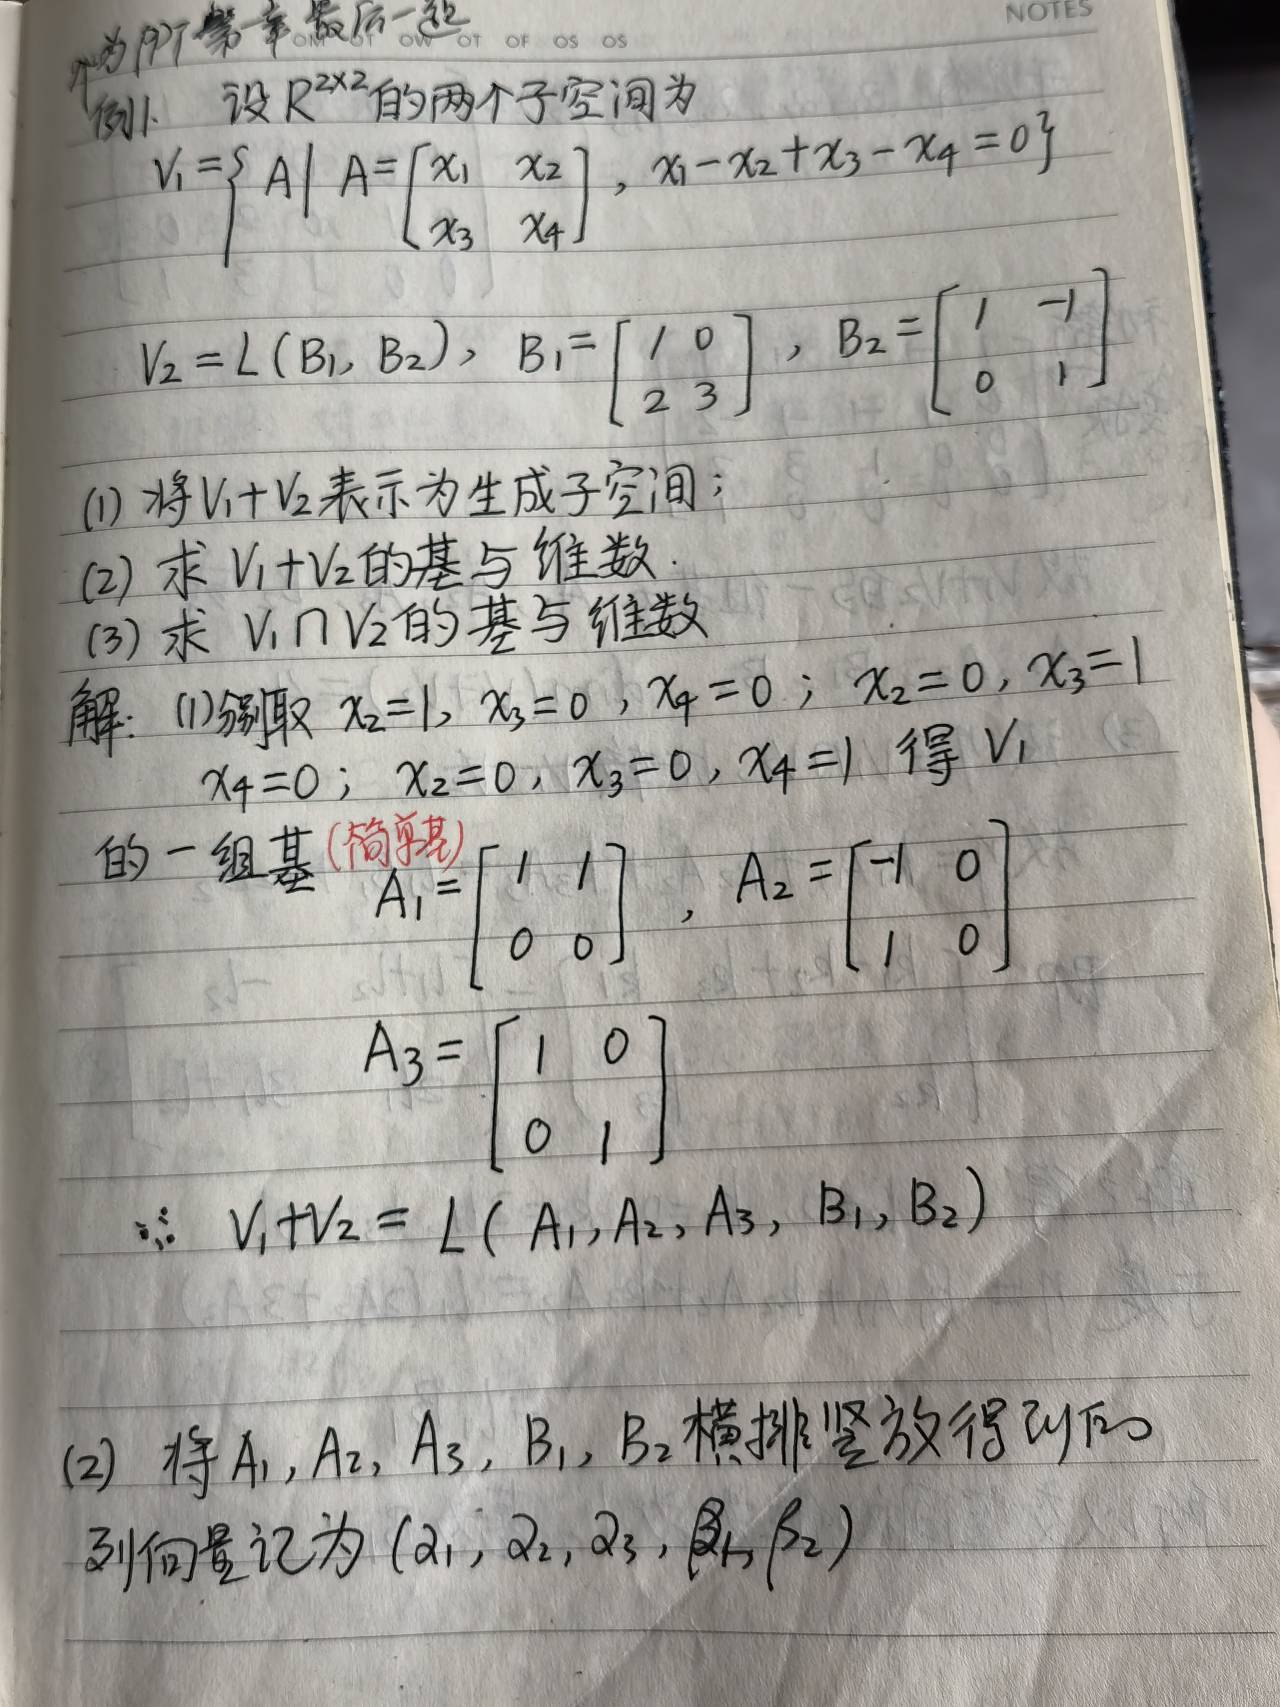 NOTES
为PPT第一章最后一题
OM OT OW OT OF OS OS
例1. 设R^{2×2}的两个子空间为
V₁={A| A=[x₁ x₂; x₃ x₄], x₁-x₂+x₃-x₄=0}
V₂=L(B₁, B₂), B₁=[1 0; 2 3], B₂=[1 -1; 0 1]
(1) 将V₁+V₂表示为生成子空间;
(2) 求 V₁+V₂的基与维数.
(3) 求 V₁∩V₂的基与维数
解: (1)分别取 x₂=1, x₃=0, x₄=0; x₂=0, x₃=1
x₄=0; x₂=0, x₃=0, x₄=1 得 V₁
的一组基(简单基) A₁=[1 1; 0 0], A₂=[-1 0; 1 0]
A₃=[1 0; 0 1]
∴ V₁+V₂= L(A₁, A₂, A₃, B₁, B₂)
(2) 将A₁, A₂, A₃, B₁, B₂横排竖放得到的
列向量记为(α₁, α₂, α₃, β₁, β₂)